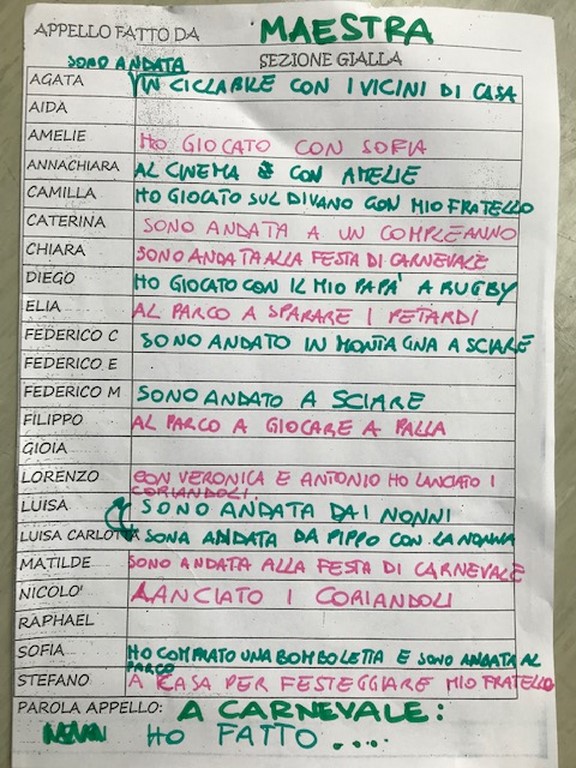 APPELLO FATTO DA MAESTRA
SEZIONE GIALLA
SONO ANDATA
AGATA IN CICLABILE CON I VICINI DI CASA
AIDA
AMELIE HO GIOCATO CON SOFIA
ANNACHIARA AL CINEMA CON AMELIE
CAMILLA HO GIOCATO SUL DIVANO CON MIO FRATELLO
CATERINA SONO ANDATA A UN COMPLEANNO
CHIARA SONO ANDATA ALLA FESTA DI CARNEVALE
DIEGO HO GIOCATO CON IL MIO PAPA' A RUGBY
ELIA AL PARCO A SPARARE I PETARDI
FEDERICO C SONO ANDATO IN MONTAGNA A SCIARE
FEDERICO E
FEDERICO M SONO ANDATO A SCIARE
FILIPPO AL PARCO A GIOCARE A PALLA
GIOIA
LORENZO CON VERONICA E ANTONIO HO LANCIATO I
CORIANDOLI.
LUISA SONO ANDATA DAI NONNI
LUISA CARLOTTA SONA ANDATA DA PIPPO CON LA NONNA
MATILDE SONO ANDATA ALLA FESTA DI CARNEVALE
NICOLO' LANCIATO I CORIANDOLI
RAPHAEL
SOFIA HO COMPRATO UNA BOMBOLETTA E SONO ANDATA AL
PARCO
STEFANO A CASA PER FESTEGGIARE MIO FRATELLO
PAROLA APPELLO: A CARNEVALE:
HO FATTO ....